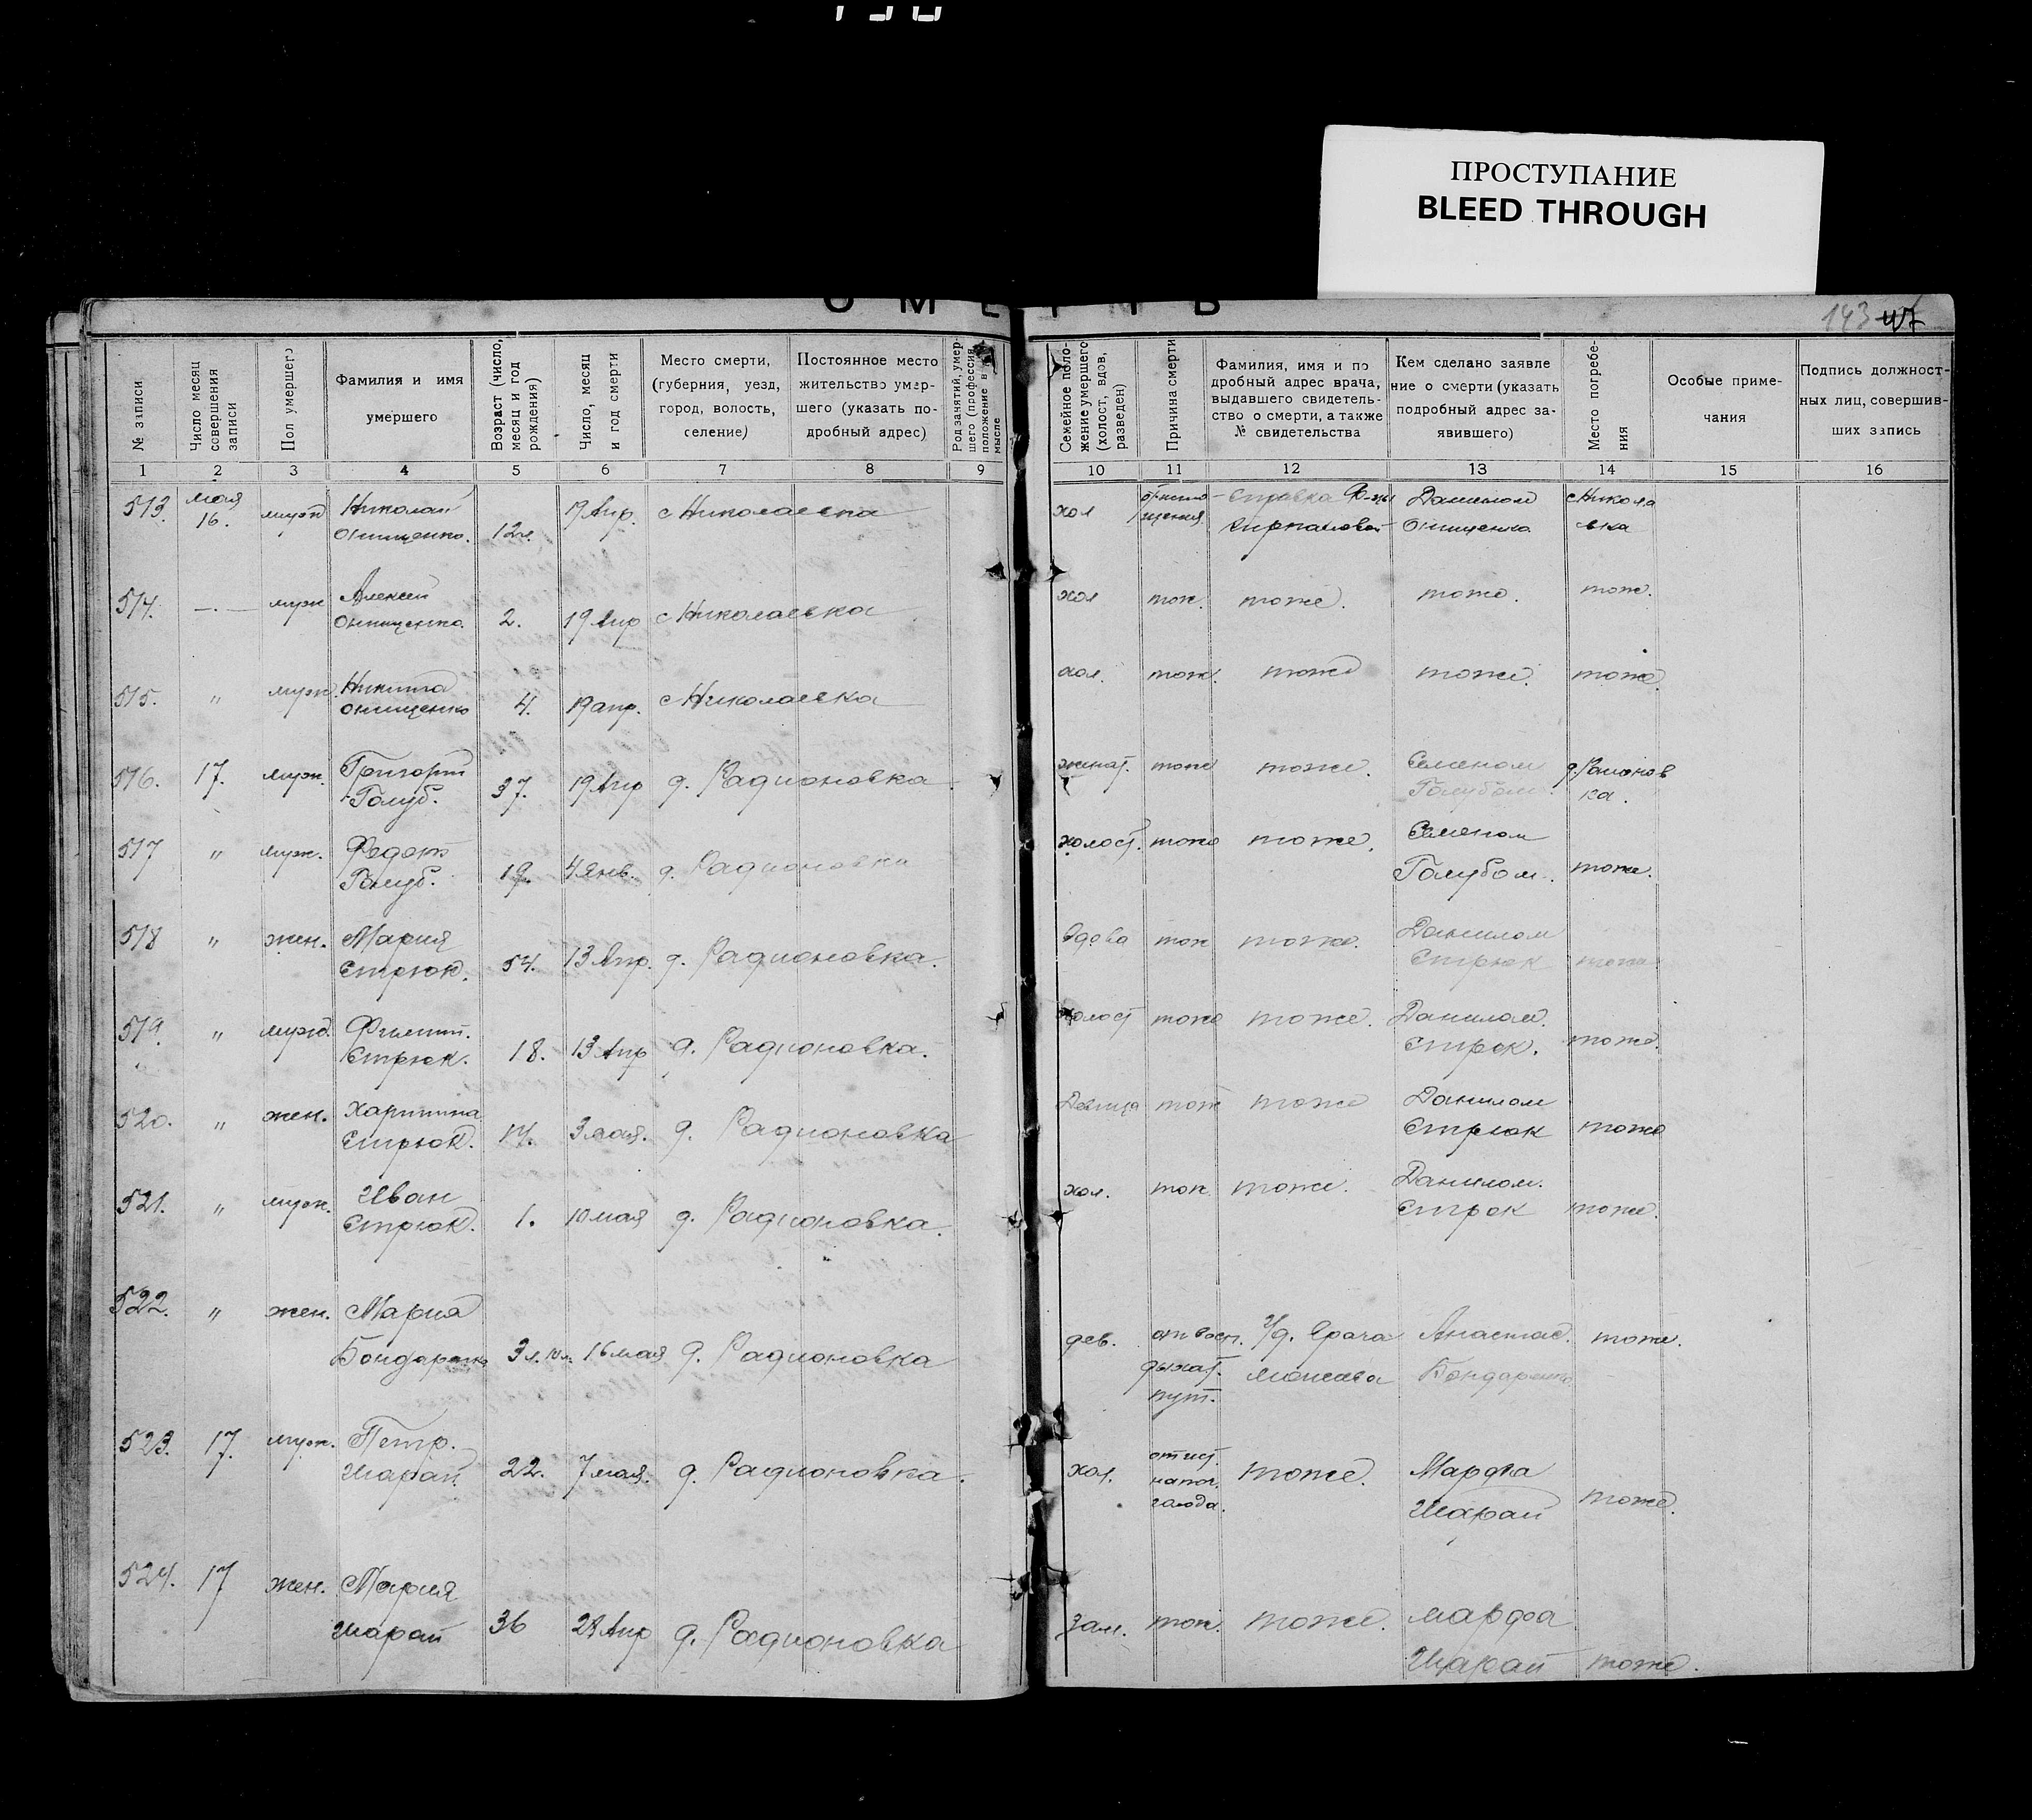 ПРОСТУПАНИЕ
BLEED THROUGH
О М Е Р Т В
143 47
№ записи
Число месяц совершения записи
Пол умершего
Фамилия и имя умершего
Возраст (число, месяц и год рождения)
Число, месяц и год смерти
Место смерти, (губерния, уезд, город, волость, селение)
Постоянное место жительство умершего (указать подробный адрес)
Род занятий, умершего (профессия, положение в мысле
Семейное положение умершего (холост, вдов, разведен)
Причина смерти
Фамилия, имя и по дробный адрес врача, выдавшего свидетельство о смерти, а также № свидетельства
Кем сделано заявле ние о смерти (указать подробный адрес заявившего)
Место погребения
Особые примечания
Подпись должностных лиц, совершивших запись
1 2 3 4 5 6 7 8 9 10 11 12 13 14 15 16
513. мая 16. муж Николай Онищенко. 12л. 19 Апр. с Николаевка хол справка Данилом Онищенко с Никола евка
514. —.— муж Алексей Онищенко. 2. 19 Апр с Николаевка хол тож. тоже. тоже. тоже.
515. " муж. Никита Онищенко 4. 19 апр. с Николаевка хол. тож. тоже тоже. тоже.
516. 17. муж. Григорий Голуб. 37. 19 Апр д. Радионовка женат. тоже тоже. Семеном Голубом. д. Радионов ка.
517 " муж. Федот Голуб. 19. 4 Янв. д. Радионовка холост. тоже тоже. Семеном Голубом. тоже.
518 " жен. Мария Стрюк. 54. 13 Апр. д. Радионовка. Вдова тож тоже. Данилом Стрюк тоже
519. " муж. Филипп. Стрюк. 18. 13 Апр д. Радионовка. холост тоже тоже. Данилом. Стрюк. тоже.
520. " жен. Харитина Стрюк. 14. 3 мая. д. Радионовка Девица тож тоже Данилом Стрюк тоже
521. " муж. Иван Стрюк. 1. 10 мая д. Радионовка. хол. тож. тоже. Данилом. Стрюк тоже.
522. " жен. Мария Бондаренко 3 л. 16 мая д. Радионовка дев. от восп. дыхат. пут. врача Анастас. Бондаренко тоже.
523. 17. муж. Петр. Шарай. 22. 7 мая. д. Радионовка. хол. от ист. голода. тоже. Марфа Шарай тоже.
524. 17 жен. Мария Шарай 36 28 Апр д. Радионовка зам. тож. тоже. Марфа Шарай тоже.